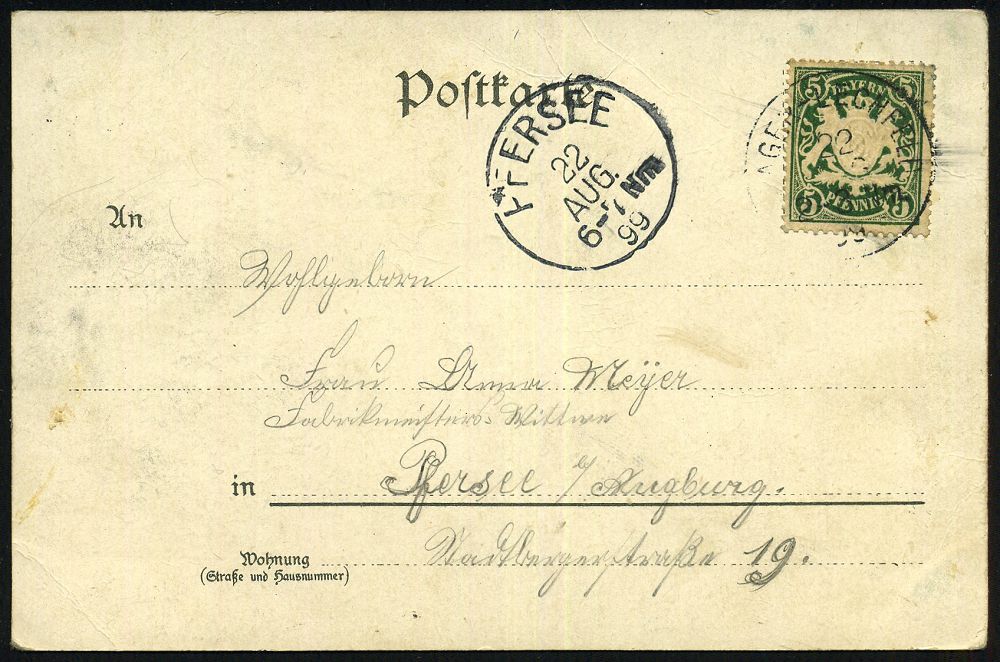 Postkarte
5 BAYERN 5
5 PFENNIG 5
22
99
PFERSEE
22
AUG.
6-7 Nm
99
An
Wohlgeborn
Frau Anna Meÿer
Fabrikmeisters-Wittwe
in Pfersee b/ Augburg.
Wohnung
(Straße und Hausnummer)
Stadtbergerstraße 19.